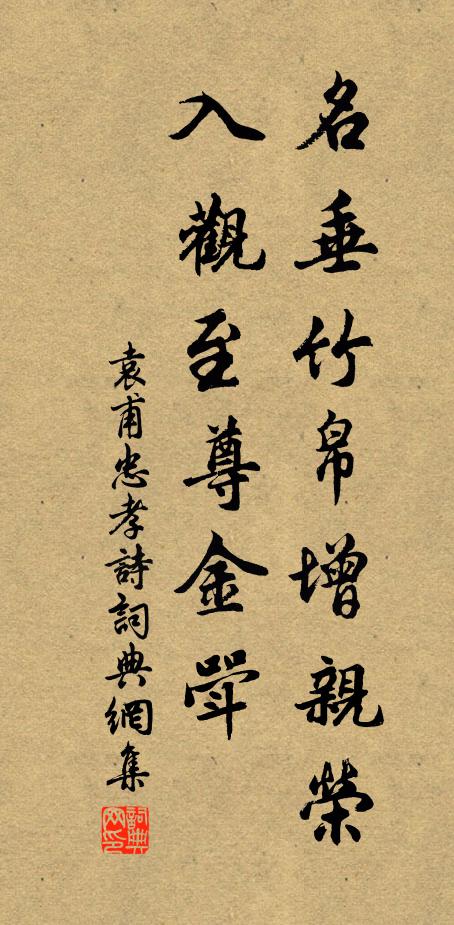 名垂竹帛增親榮
入觀至尊金斝
袁甫忠孝詩詞典網集
詞典網印